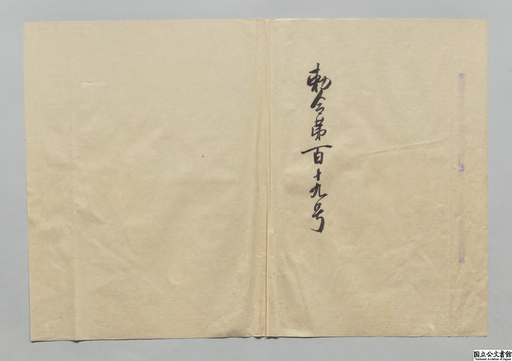 勅令第百十九号
国立公文書館
National Archives of Japan